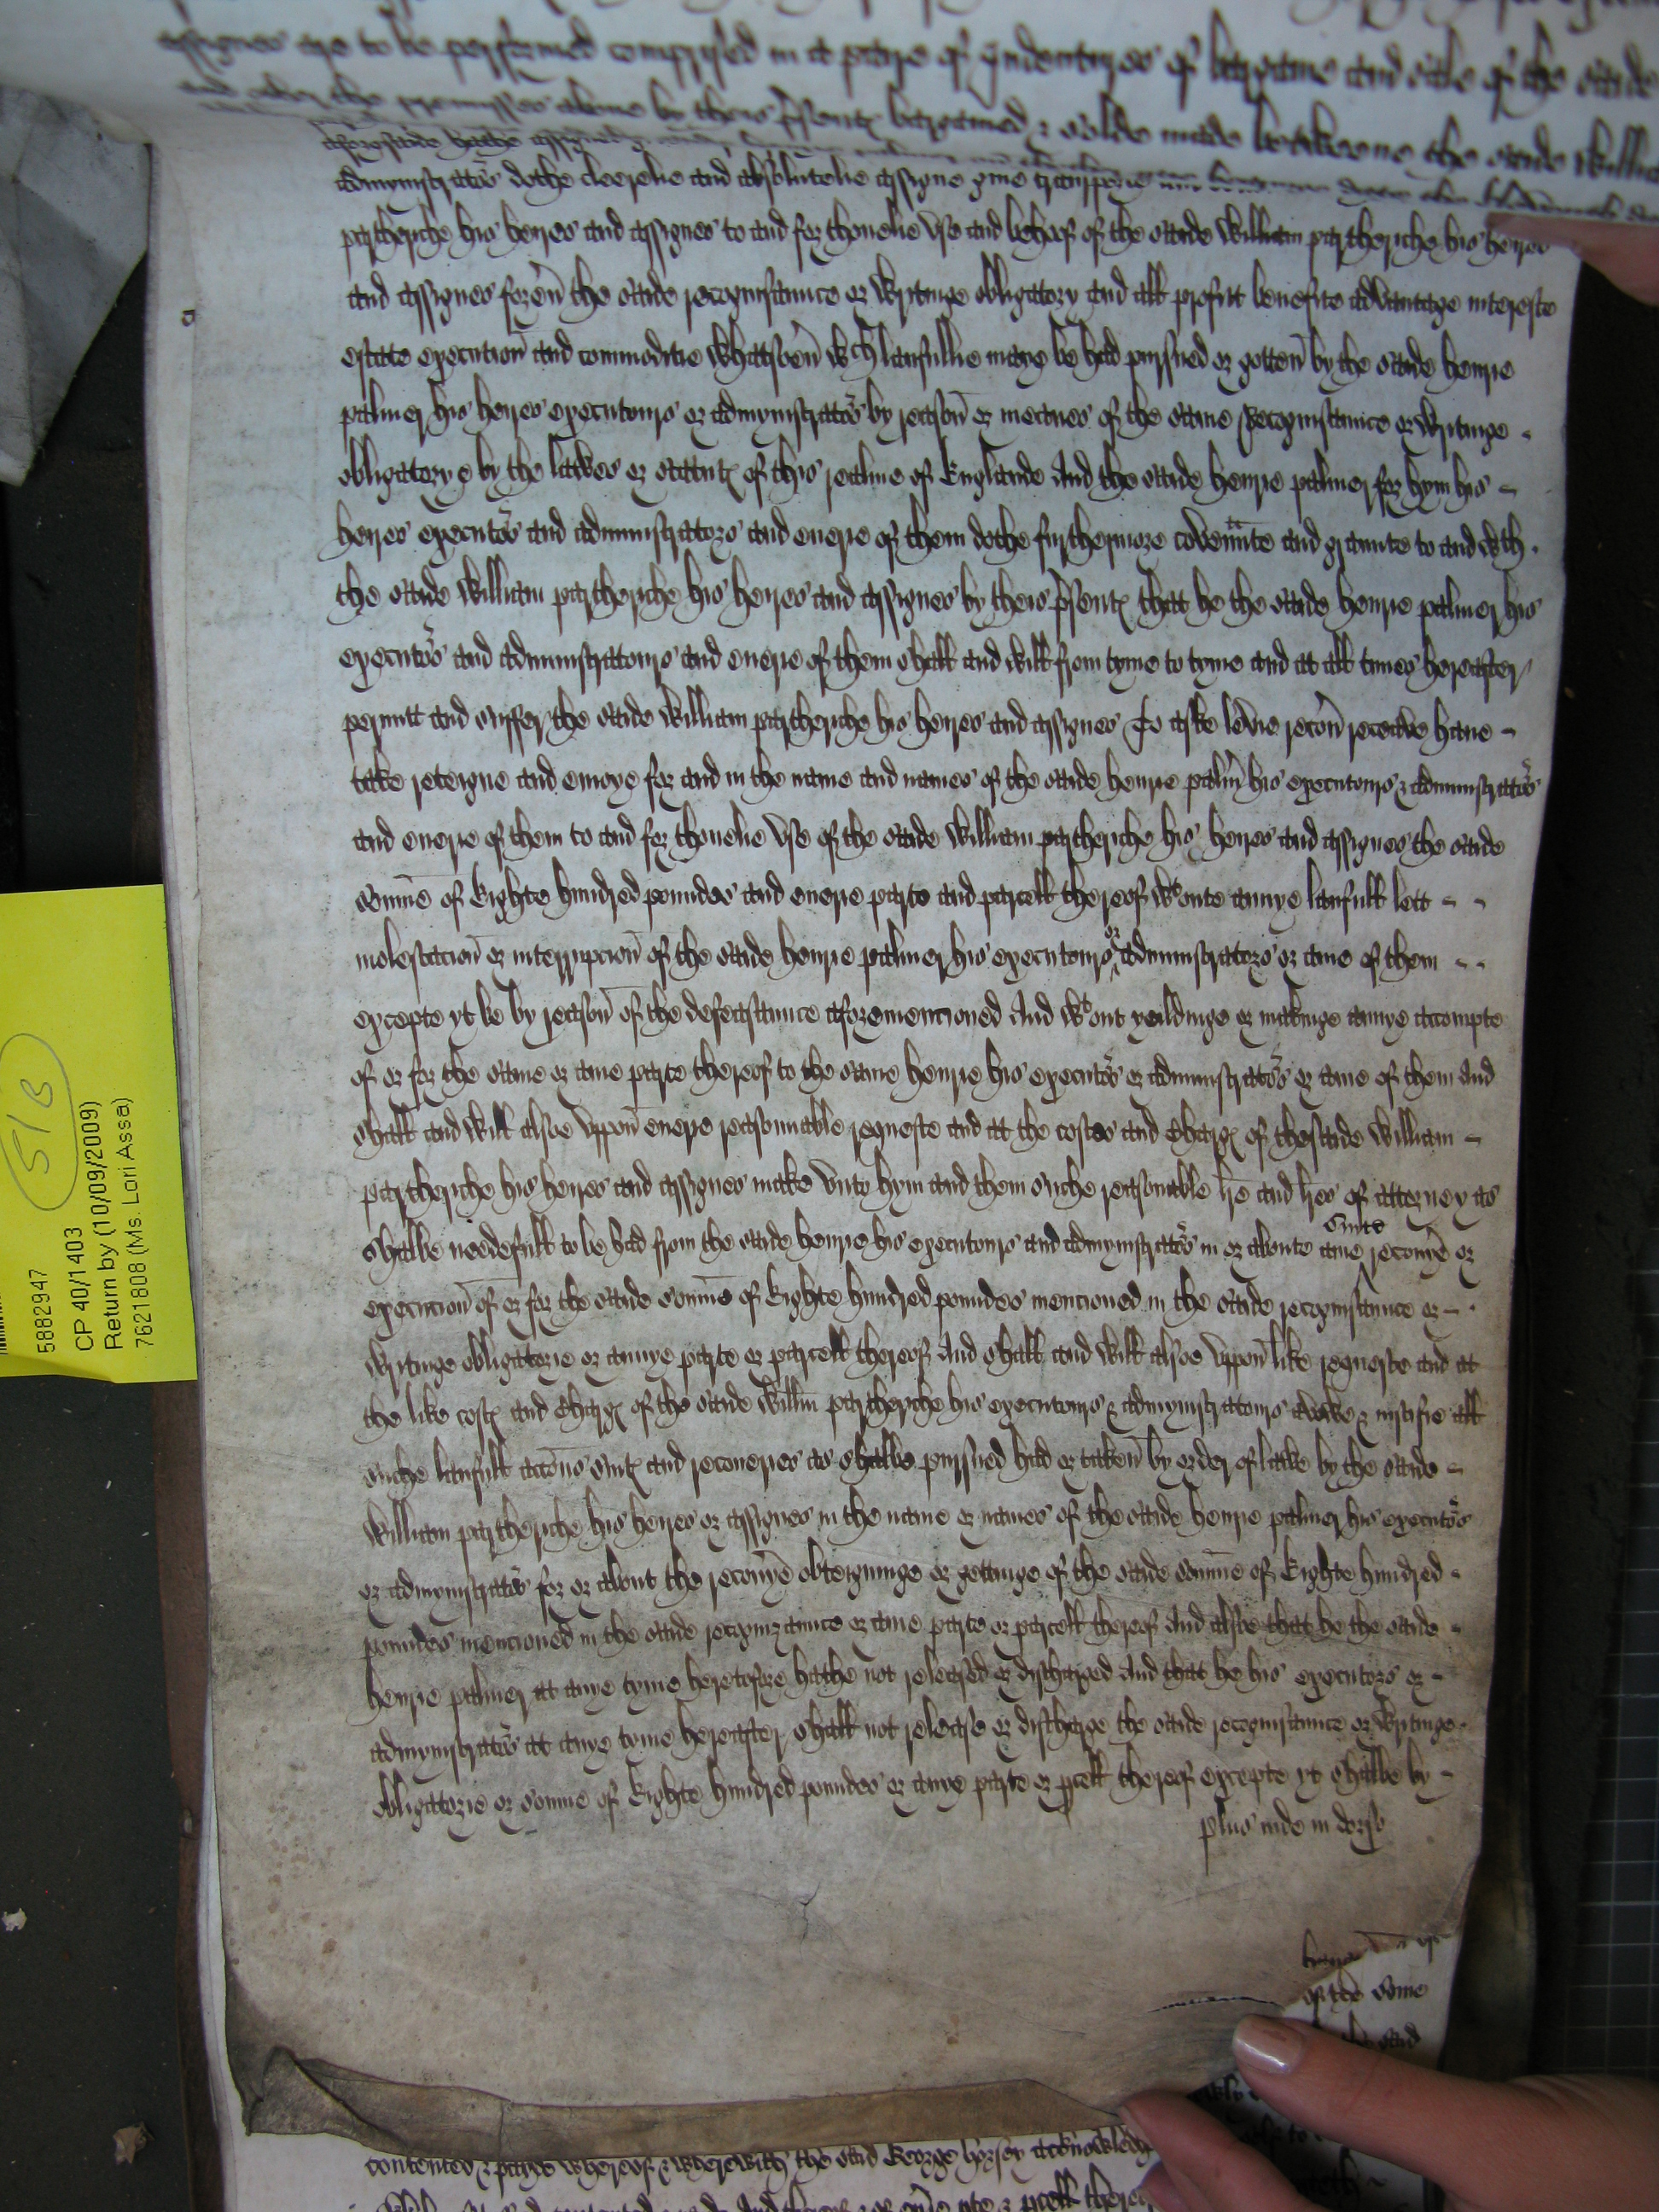 assignes are to be performed comprised in a paire of Indentures of bargaine and sale of the saide
and other the premisses above by theis p̃sentꝭ bargained & solde made betweene the saide Willia
aforesaide hathe assigned
admynistratõs dothe cleerelie and absolutelie assigne give
partheriche his heires and assignes to and for thonelie vse and behoof of the saide William partheriche his heires
and assignes forev̾ the saide recognisaunce or Writinge obligatory and all profitt benefite advauntage intereste
estate execution̄ and commoditie Whatsoev̾ wch laufullie maye be had pursued or gotten̄ by the saide henrie
palmer his heires executours or admynistratõs by reason̄ or meanes of the same Recognisaunce or Writinge
obligatory & by the lawes or statutꝭ of this realme of Englande And the saide henrie palmer for hym his
heires executõs and administrators and euerie of them dothe furthermore covennte and graunte to and wth
the saide William partheriche his heires and assignes by theis p̃sentꝭ that he the saide henrie palmer his
executõs and administratours and euerie of them shall and will from tyme to tyme and at all times hereafter
permitt and suffer the saide William partheriche his heires and assignes To aske levie recou̾ receave haue
take reteigne and enioye for and in the name and names of the saide henrie palm̾ his executours & administratõs
and euerie of them to and for thonelie vse of the saide William partheriche his heires and assignes the saide
som̄e of Eighte hundred poundes and euerie parte and parcell thereof wtoute annye laufull lett
molestacion̄ or interrupcion̄ of the saide henrie palmer his executours or administrators or anie of them
excepte yt be by reason̄ of the defeasaunce aforemencioned And wtout yeildinge or makinge annye accompte
of or for the same or anie parte thereof to the same henrie his executõs or administratõs or anie of them And
shall and will alsoe vppon̄ euerie reasonnable requeste and at the costes and chargꝭ of the saide William
partheriche his heires and assignes make vnto hym and them suche reasonable lr̄e and lr̄es of atterney as
shalbe needefull to be had from the saide henrie his executours and admynistratõs in or aboute anie suite recou̾ie or
execucion̄ of or for the saide som̄e of Eighte hundred poundes mencioned in the saide recognisaunce or
writinge obligatorie or annye parte or parcell thereof And shall and will alsoe vppon̄ like requeste and at
the like costꝭ and chargꝭ of the saide Willm̄ partheriche his executours & admynistratours avowe & iustifie all
suche laufull accōns suitꝭ and recoueries as shalbe pursued had or taken̄ by order of lawe by the saide
William partheriche his heires or assignes in the name or names of the saide henrie palmer his executõs
or admynistratõs for or about the recou̾ie obteigninge or gettinge of the saide som̄e of Eighte hundred
poundes mencioned in the saide recognizaunce or anie parte or parcell thereof And alsoe that he the saide
henrie palmer at anye tyme heretofore hathe not released or discharged And that he his executors or
admynistratõs at anye tyme hereafter shall not release or discharge the saide recognisaunce or Writinge
obligatorie or somme of Eighte hundred poundes or annye parte or p̱cell thereof excepte yt shalbe by
plus inde in dorso
of the some
said
contented & paide whereof & wherewith the said George horsey acknowledg
5/8
5882947
CP 40/1403
Return by (10/09/2009)
7621808 (Ms. Lori Assa)